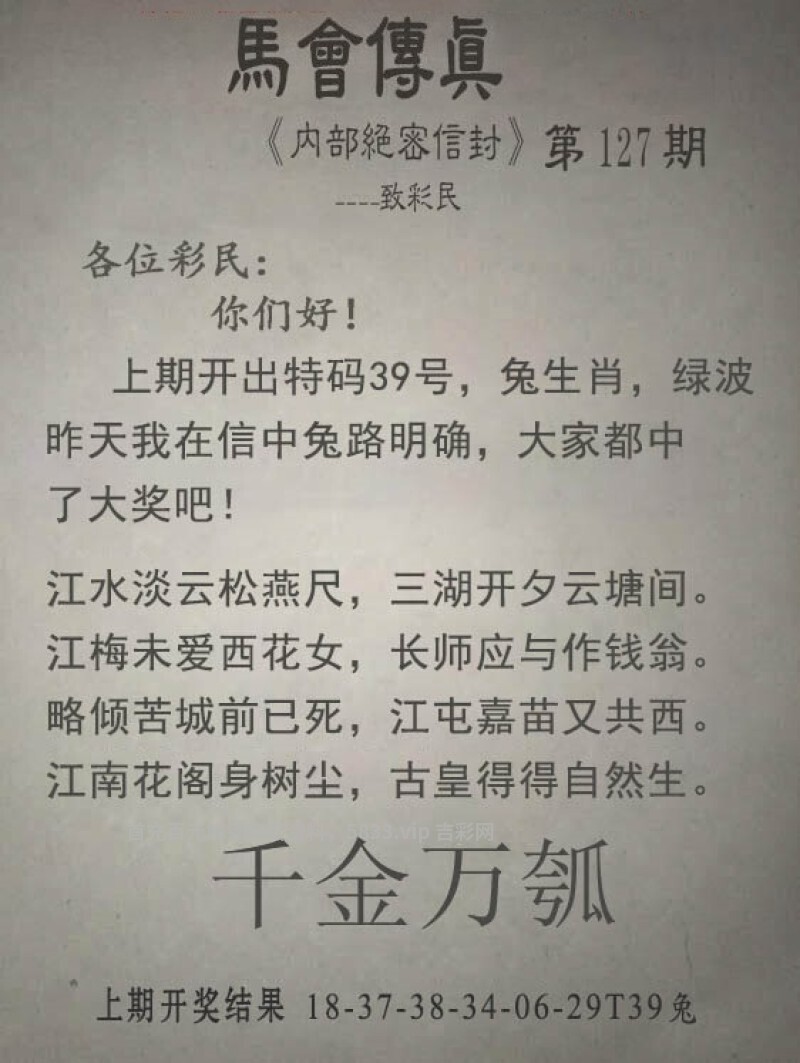 馬會傳眞
《内部絕密信封》第 127 期
----致彩民
各位彩民：
你们好！
上期开出特码39号，兔生肖，绿波
昨天我在信中兔路明确，大家都中
了大奖吧！
江水淡云松燕尺，三湖开夕云塘间。
江梅未爱西花女，长师应与作钱翁。
略倾苦城前已死，江屯嘉苗又共西。
江南花阁身树尘，古皇得得自然生。
千金万瓠
上期开奖结果 18-37-38-34-06-29T39兔